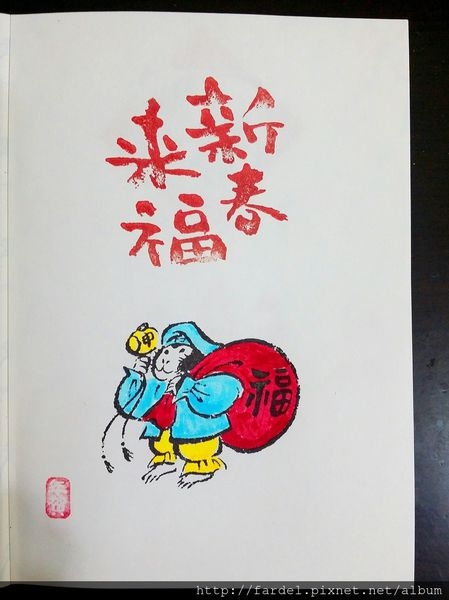 新春
来福
申
福
http://fardel.pixnet.net/album